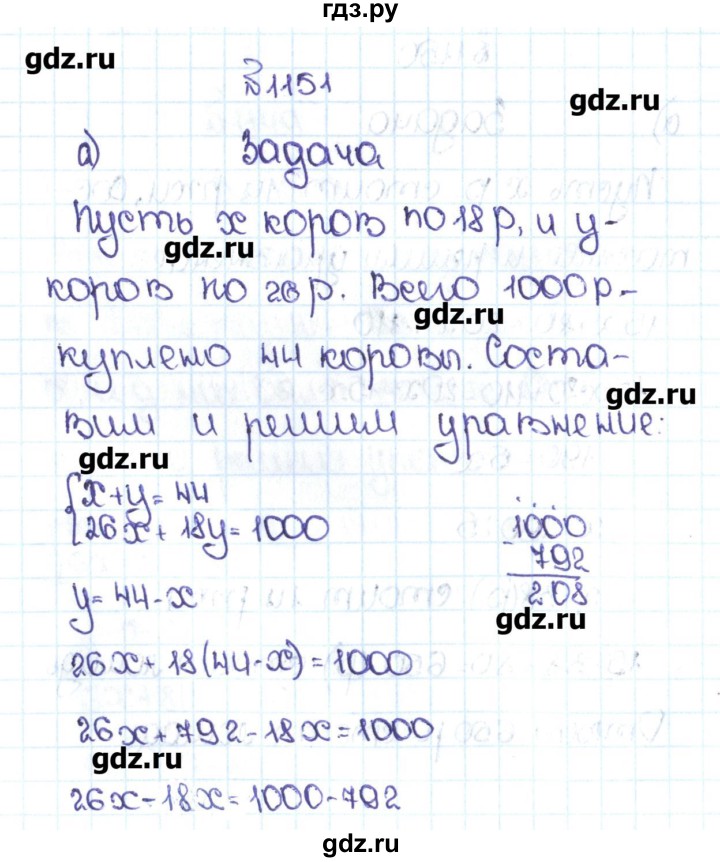 гдз.ру
gdz.ru
№1151
gdz.ru
а) Задача
Пусть х коров по 18 р, и у-
gdz.ru
коров по 26 р. Всего 1000р-
gdz.ru
куплено 44 коровы. Соста-
gdz.ru
вим и решим уравнение:
gdz.ru
х+у=44
26х+18у=1000
1000
- 792
208
у=44-х
gdz.ru
26х+18(44-х)=1000
26х+792-18х=1000
gdz.ru
26х-18х=1000-792
gdz.ru